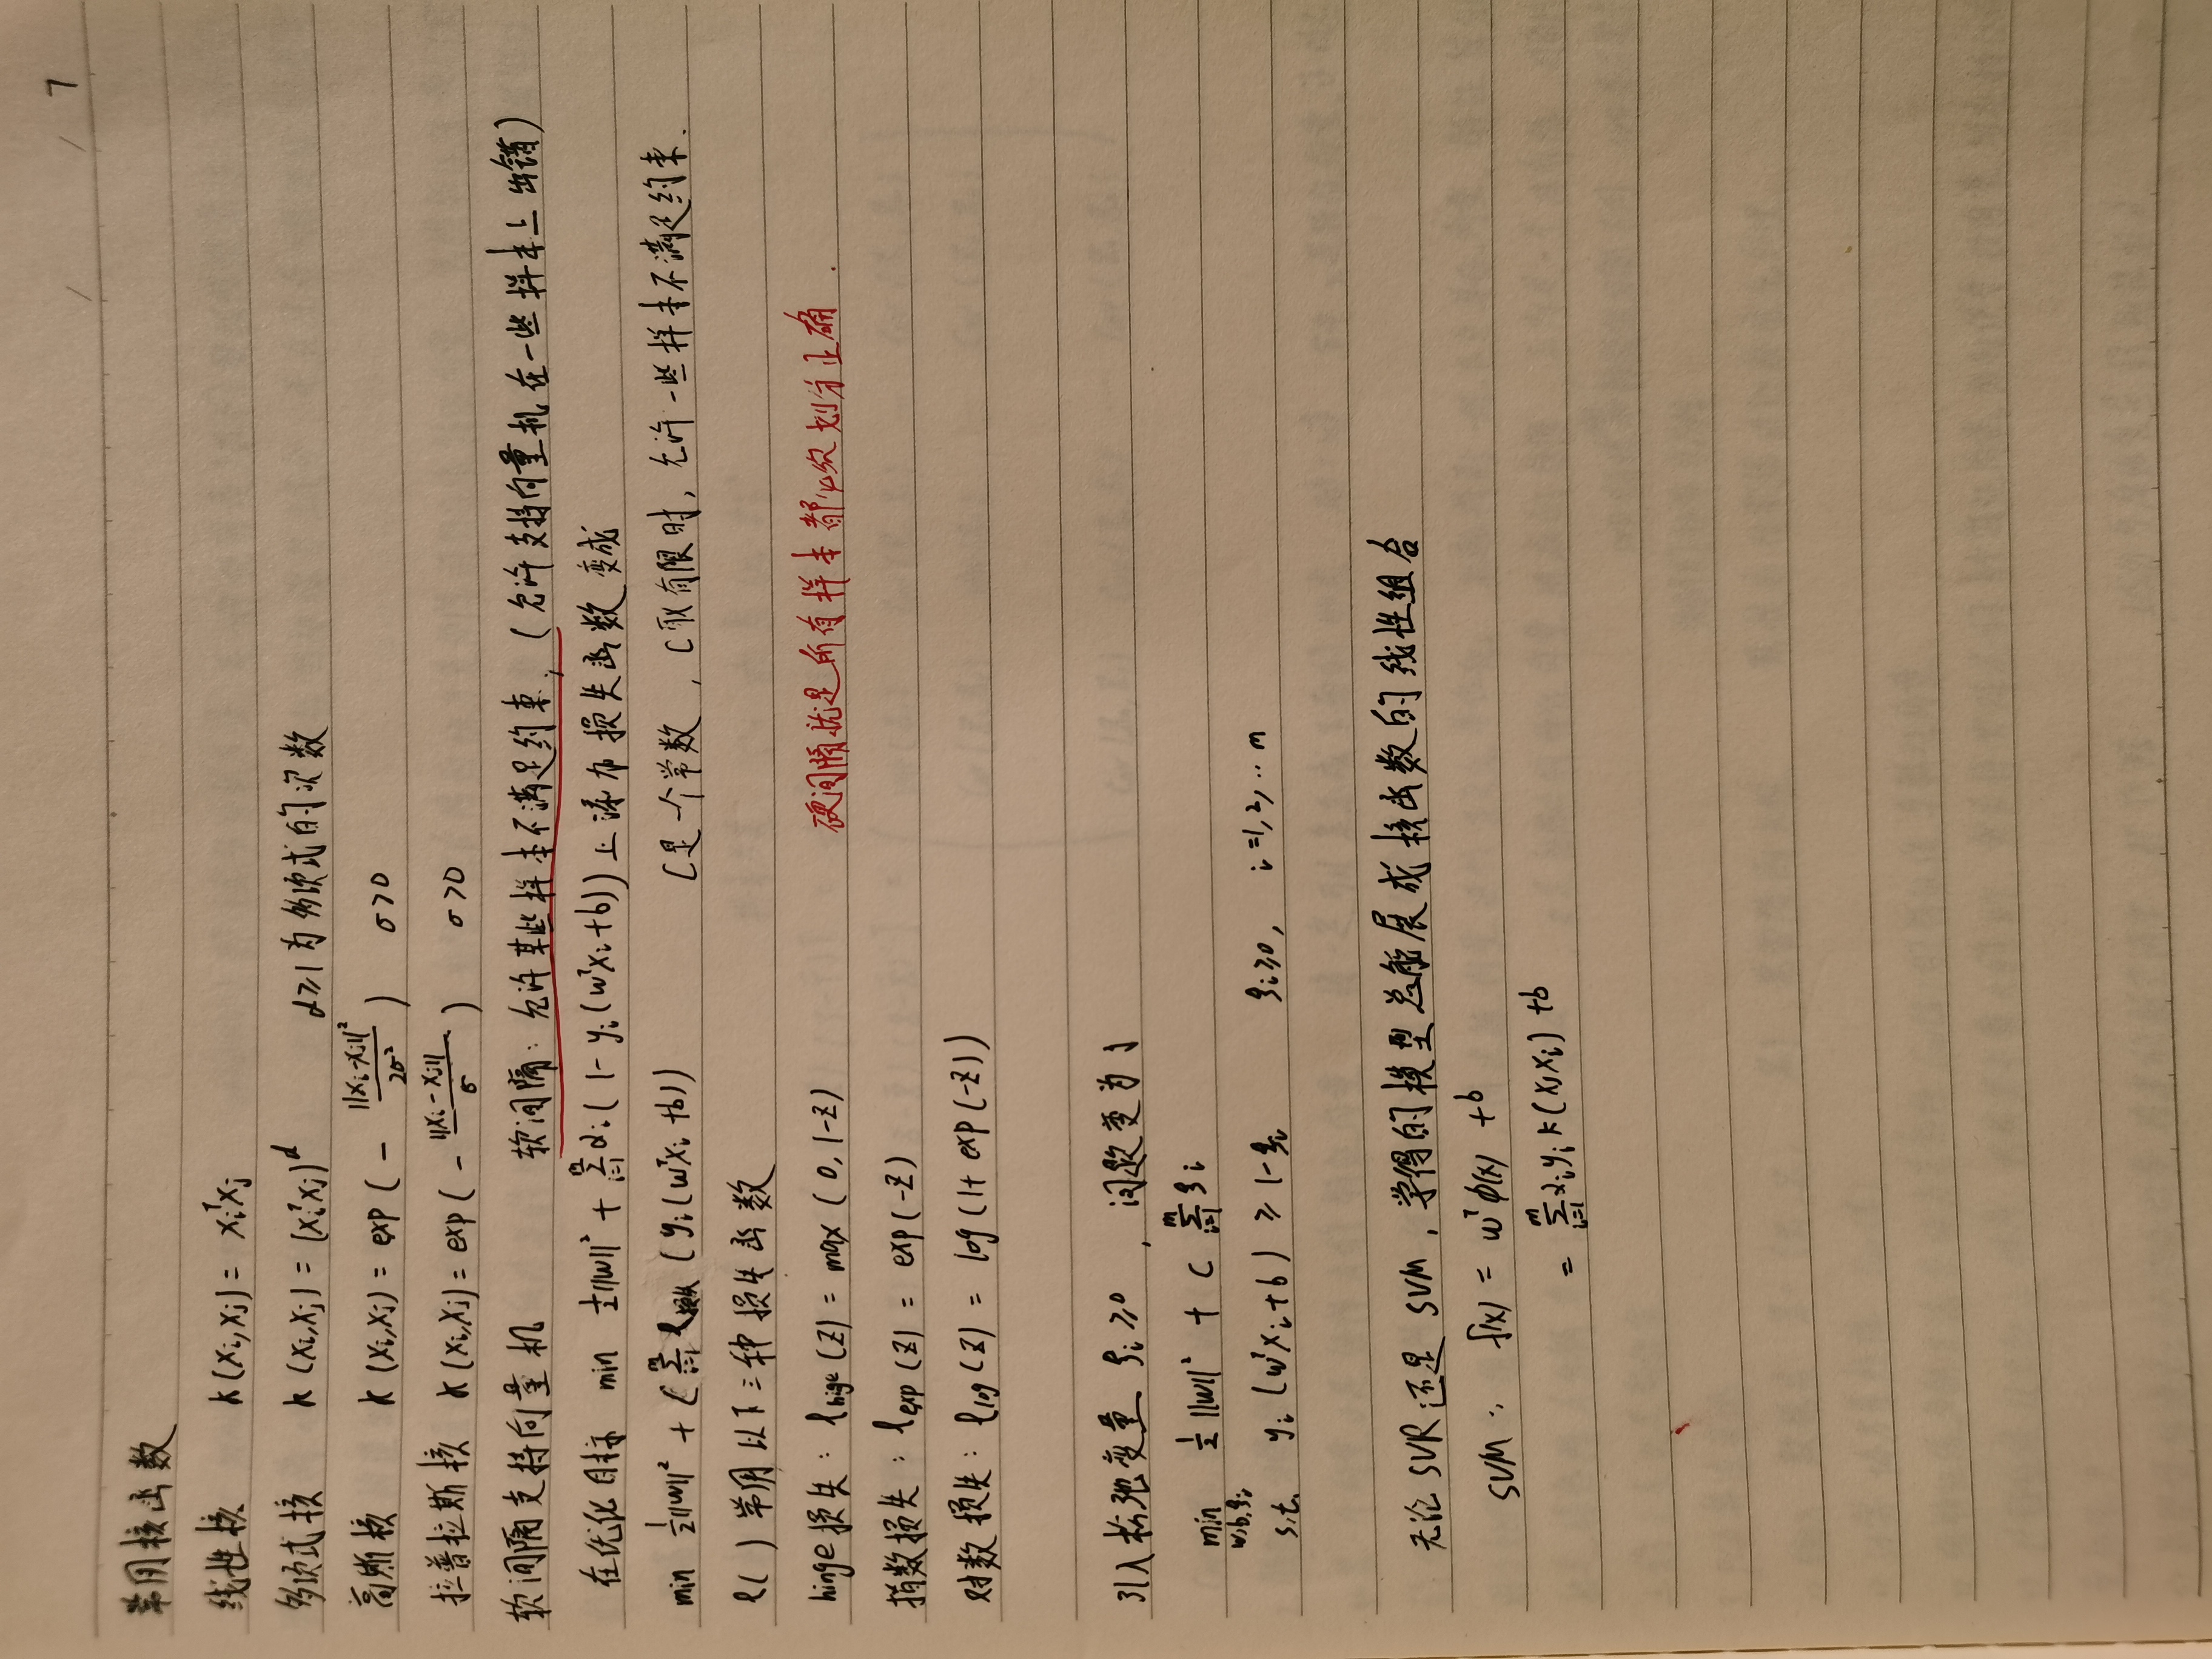 7
常用核函数
线性核 k(xᵢ,xⱼ) = xᵢᵀxⱼ
多项式核 k(xᵢ,xⱼ) = (xᵢᵀxⱼ)ᵈ d≥1为多项式的次数
高斯核 k(xᵢ,xⱼ) = exp(-||xᵢ-xⱼ||²/2σ²) σ>0
拉普拉斯核 k(xᵢ,xⱼ) = exp(-||xᵢ-xⱼ||/σ) σ>0
软间隔支持向量机 软间隔: 允许某些样本不满足约束, (允许支持向量机在一些样本上出错)
在优化目标 min ½||w||² + Σᵢ₌₁ᵐ αᵢ(1-yᵢ(wᵀxᵢ+b)) 上添加损失函数变成
min ½||w||² + C Σᵢ₌₁ᵐ ℓ(yᵢ(wᵀxᵢ+b)) C是一个常数, C取有限时, 允许一些样本不满足约束.
ℓ( ) 常用以下三种损失函数
hinge损失: ℓhinge(z) = max(0, 1-z) 硬间隔就是所有样本都必须划分正确.
指数损失: ℓexp(z) = exp(-z)
对数损失: ℓlog(z) = log(1+exp(-z))
引入松弛变量 ξᵢ≥0, 问题变为
min w,b,ξᵢ ½||w||² + C Σᵢ₌₁ᵐ ξᵢ
s.t. yᵢ(wᵀxᵢ+b) ≥ 1-ξᵢ ξᵢ≥0, i=1,2,…m
无论SVR还是SVM, 学得的模型总能展成核函数的线性组合
SVM: f(x) = wᵀφ(x) +b
= Σᵢ₌₁ᵐ αᵢyᵢk(x,xᵢ) +b